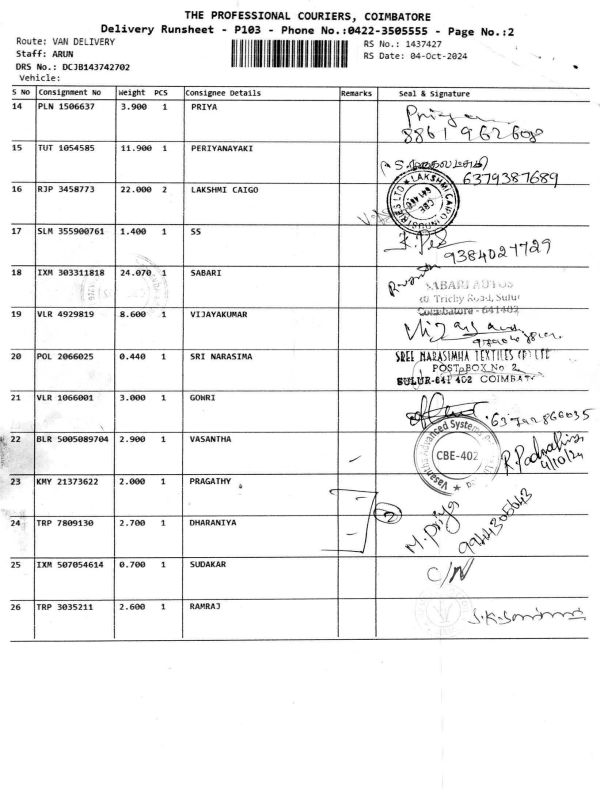 THE PROFESSIONAL COURIERS, COIMBATORE
Delivery Runsheet - P103 - Phone No.:0422-3505555 - Page No.:2
Route: VAN DELIVERY RS No.: 1437427
Staff: ARUN RS Date: 04-Oct-2024
DRS No.: DCJB143742702
Vehicle:
S No Consignment No Weight PCS Consignee Details Remarks Seal & Signature
14 PLN 1506637 3.900 1 PRIYA Priya
15 TUT 1054585 11.900 1 PERIYANAYAKI
6379387689
16 RJP 3458773 22.000 2 LAKSHMI CAIGO LAKSHMI CAIGO INDUSTRIES LTD CBE 641 402
17 SLM 355900761 1.400 1 SS
9384027729
18 IXM 303311818 24.070 1 SABARI
SABARI AUTOS
Trichy Road, Sulur
Coimbatore - 641402
19 VLR 4929819 8.600 1 VIJAYAKUMAR
20 POL 2066025 0.440 1 SRI NARASIMA SREE NARASIMHA TEXTILES (P) LTD
POST BOX No 2
SULUR-641 402 COIMBAT
21 VLR 1066001 3.000 1 GOWRI
22 BLR 5005089704 2.900 1 VASANTHA Vasantha Advanced Systems CBE-402
4/10/24
23 KMY 21373622 2.000 1 PRAGATHY
24 TRP 7809130 2.700 1 DHARANIYA 2 M. Priya
9944305643
25 IXM 507054614 0.700 1 SUDAKAR C/N
26 TRP 3035211 2.600 1 RAMRAJ